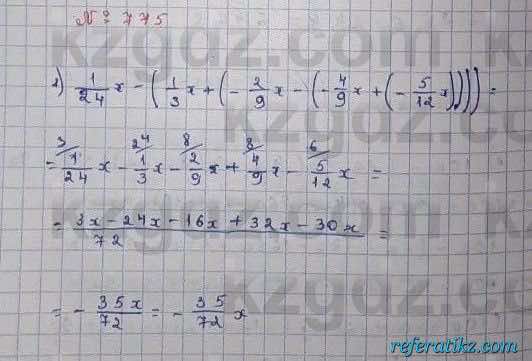 № 775
1) 1/24 x - (1/3 x + (- 2/9 x - (- 4/9 x + (- 5/12 x)))) =
= 3/ 1/24 x - 24/ 1/3 x - 8/ 2/9 x + 8/ 4/9 x - 6/ 5/12 x =
= 3x - 24x - 16x + 32x - 30x / 72 =
= - 35x/72 = - 35/72 x
kzgdz.com
referatikz.com